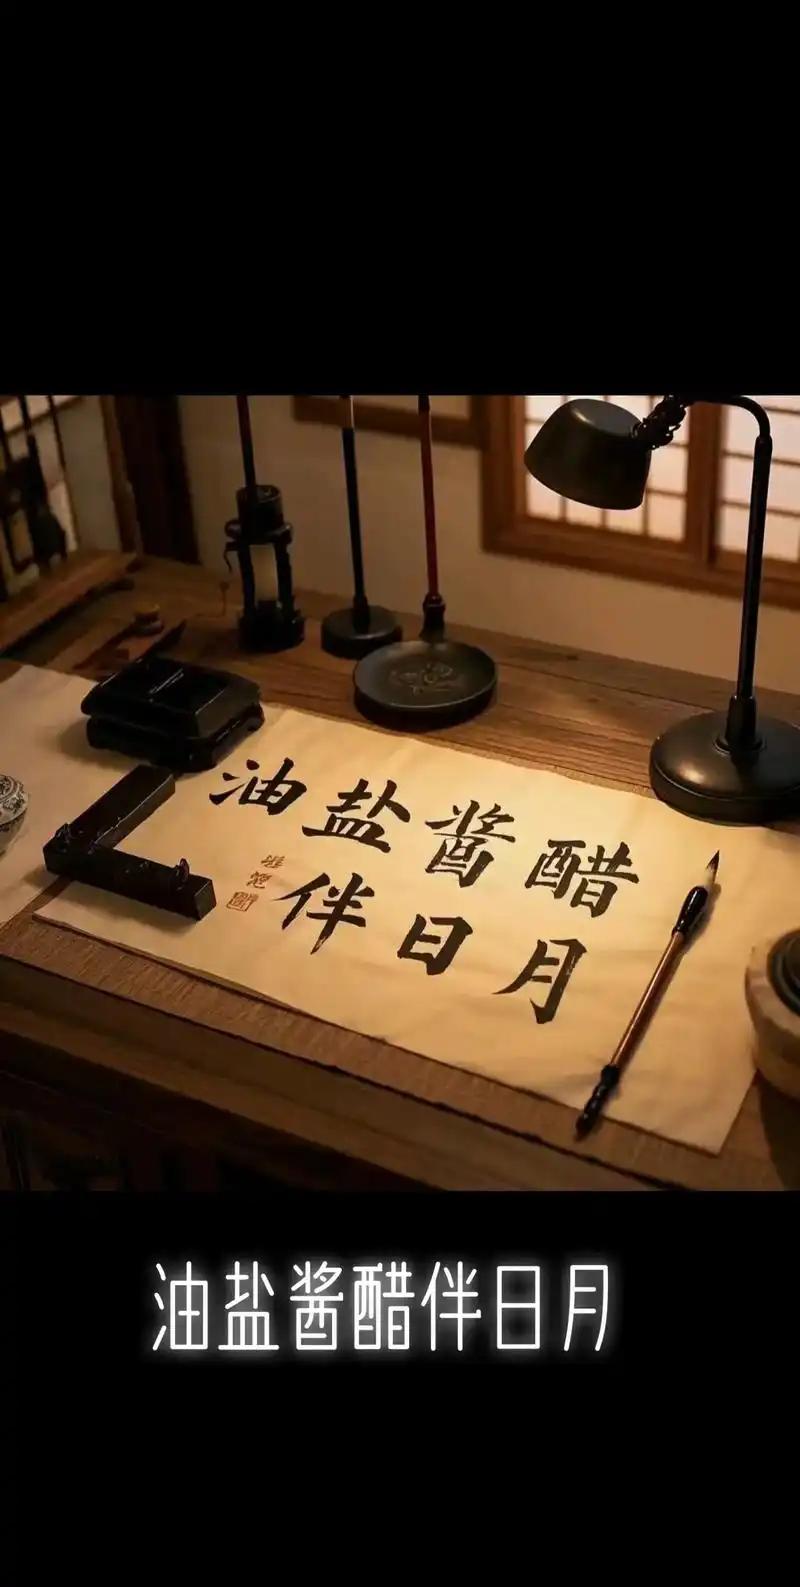 油盐酱醋
伴日月
油盐酱醋伴日月